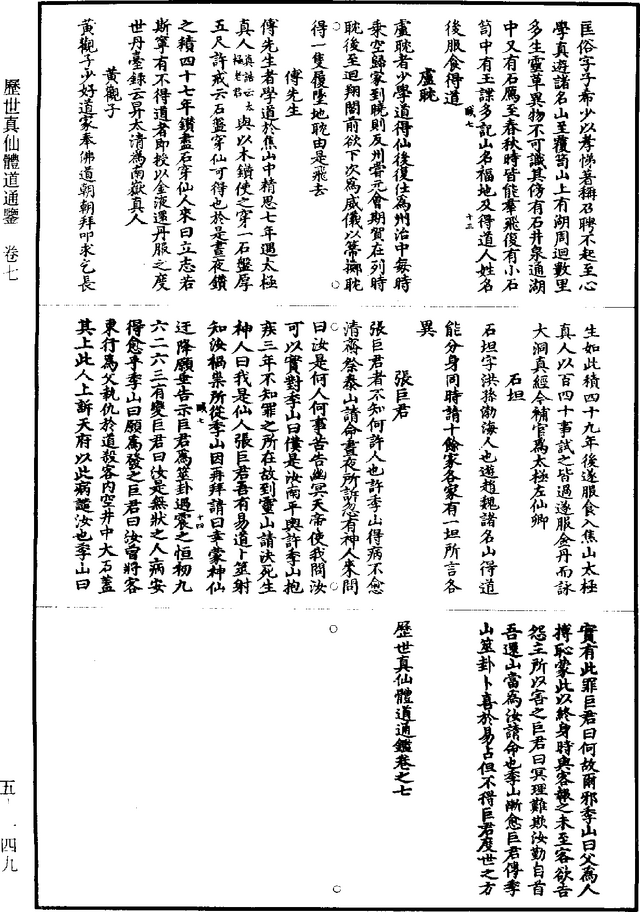 歷世真仙體道通鑒 卷七
匡俗字子希少以孝悌著稱召聘不起至心
學真遊諸名山至覆笥山上有湖周迴數里
多生靈草異物不可識其傍有石井泉通湖
中又有石鴈至春秋時皆能羣飛復有小石
笥中有玉諜多記山名福地及得道人姓名
後服食得道 職七 十三
盧耽
盧耽者少學道得仙後復仕為州治中每時
乘空歸家到曉則反州嘗元會期賀在列時
耽後至迴翔閣前欲下次為威儀以箒擲耽
得一隻履墜地耽由是飛去
傅先生
傅先生者學道於焦山中精思七年遇太極
真人真誥云太極老君與以木鑽使之穿一石盤厚
五尺許戒云石盤穿仙可得也於是晝夜鑽
之積四十七年鑽盡石穿仙人來曰立志若
斯寧有不得道者即授以金液還丹服之度
世丹臺錄云昇太清為南嶽真人
黃觀子
黃觀子少好道家奉佛道朝朝拜叩求乞長
生如此積四十九年後遂服食入焦山太極
真人以百四十事試之皆過遂服金丹而詠
大洞真經今補官為太極左仙卿
石坦
石坦字洪孫渤海人也遊趙魏諸名山得道
能分身同時請十餘家各家有一坦所言各
異
張巨君
張巨君者不知何許人也許季山得病不愈
清齋祭泰山請命晝夜所訴忽有神人來問
曰汝是何人何事苦告幽冥天帝使我問汝
可以實對季山曰僕是汝南平輿許季山抱
疾三年不知罪之所在故到靈山請決死生
神人曰我是仙人張巨君吾有易道卜筮射
知汝禍祟所從季山因再拜請曰幸蒙神仙 職七 十四
迂降願垂告示巨君為筮卦遇震之恒初九
六二六三有變巨君曰汝是無狀之人病安
得愈乎季山曰願為發之巨君曰汝曾將客
東行為父執仇於道殺客內空井中大石蓋
其上此人上訴天府以此病譴汝也季山曰
實有此罪巨君曰何故爾邪季山曰父為人
搏恥蒙此以終身時與客報之未至客欲告
怨主所以害之巨君曰冥理難欺汝勤自首
吾還山當為汝請命也季山漸愈巨君傳季
山筮卦卜喜於易占但不得巨君度世之方
歷世真仙體道通鑑卷之七
五-一四九